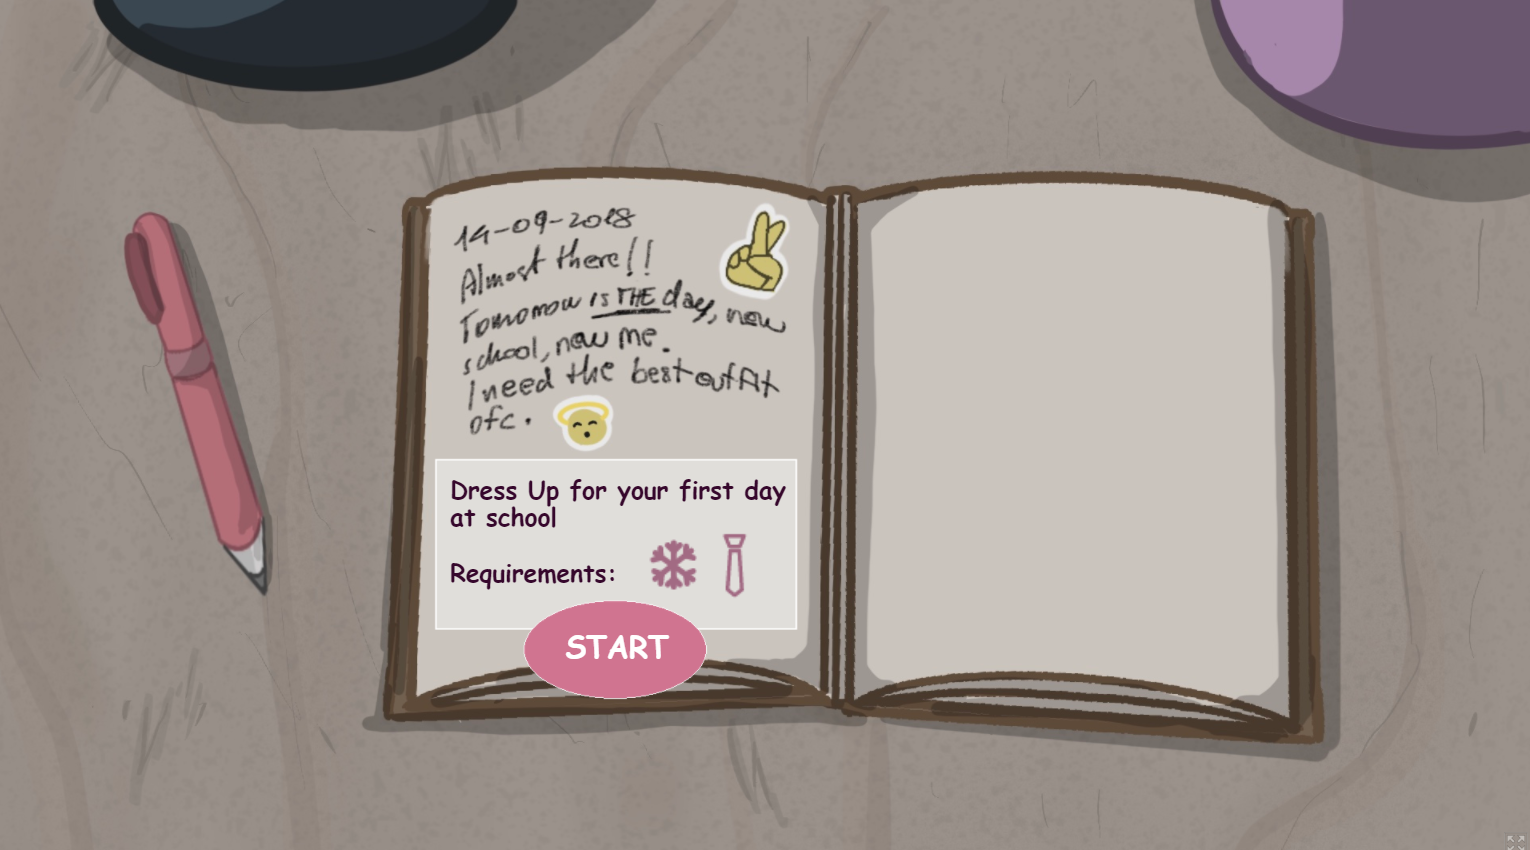 14-09-2018
Almost there!!
Tomorrow is THE day, new
school, new me.
I need the best outfit
ofc.
Dress Up for your first day
at school
Requirements:
START